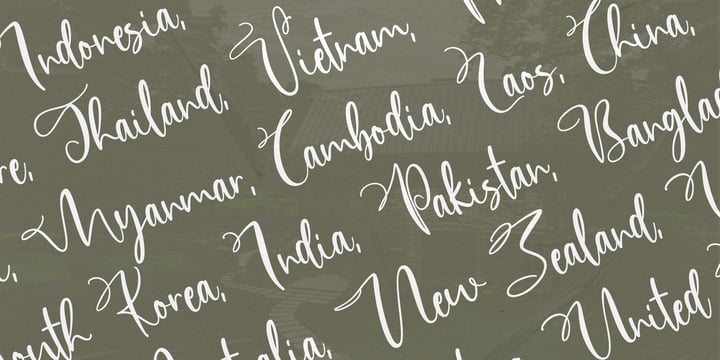 Indonesia, Vietnam,
Thailand, Cambodia, Laos, China,
re, Myanmar, India, Pakistan, Banglad
South Korea, New Zealand,
tralia, United